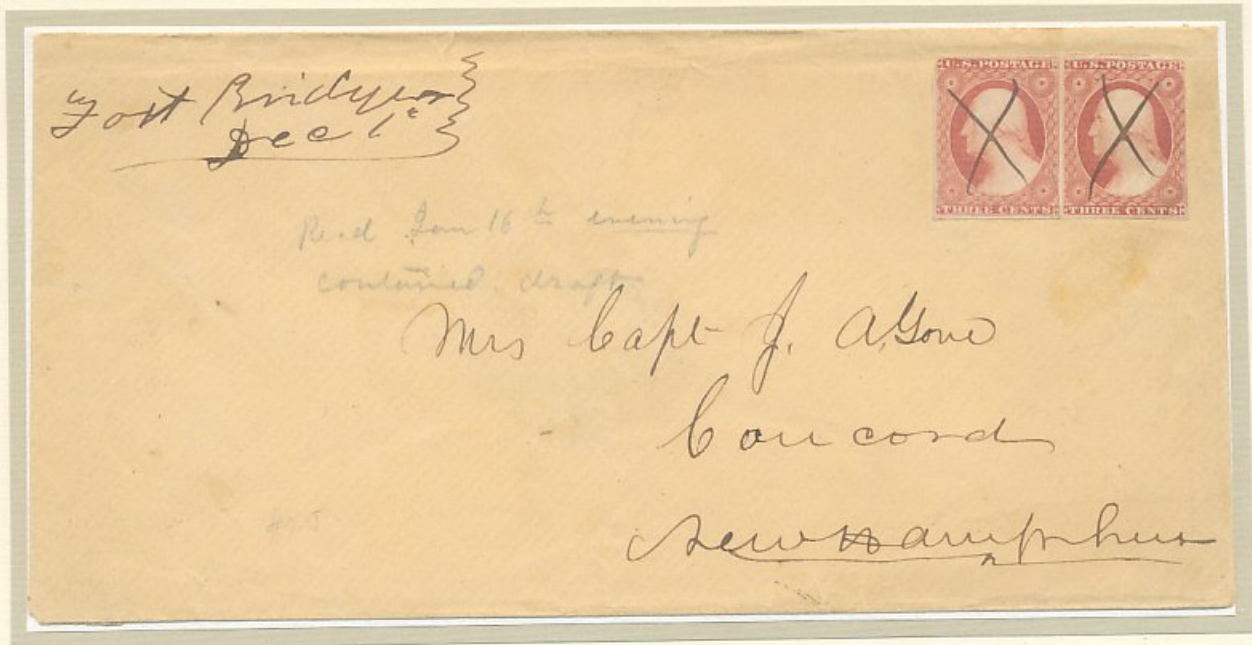 Fort Bridger
Dec 1st
U.S. POSTAGE U.S. POSTAGE
THREE CENTS THREE CENTS
Recd Jan 16th evening
contained draft
Mrs Capt J. A. Gove
Concord
New Hampshire